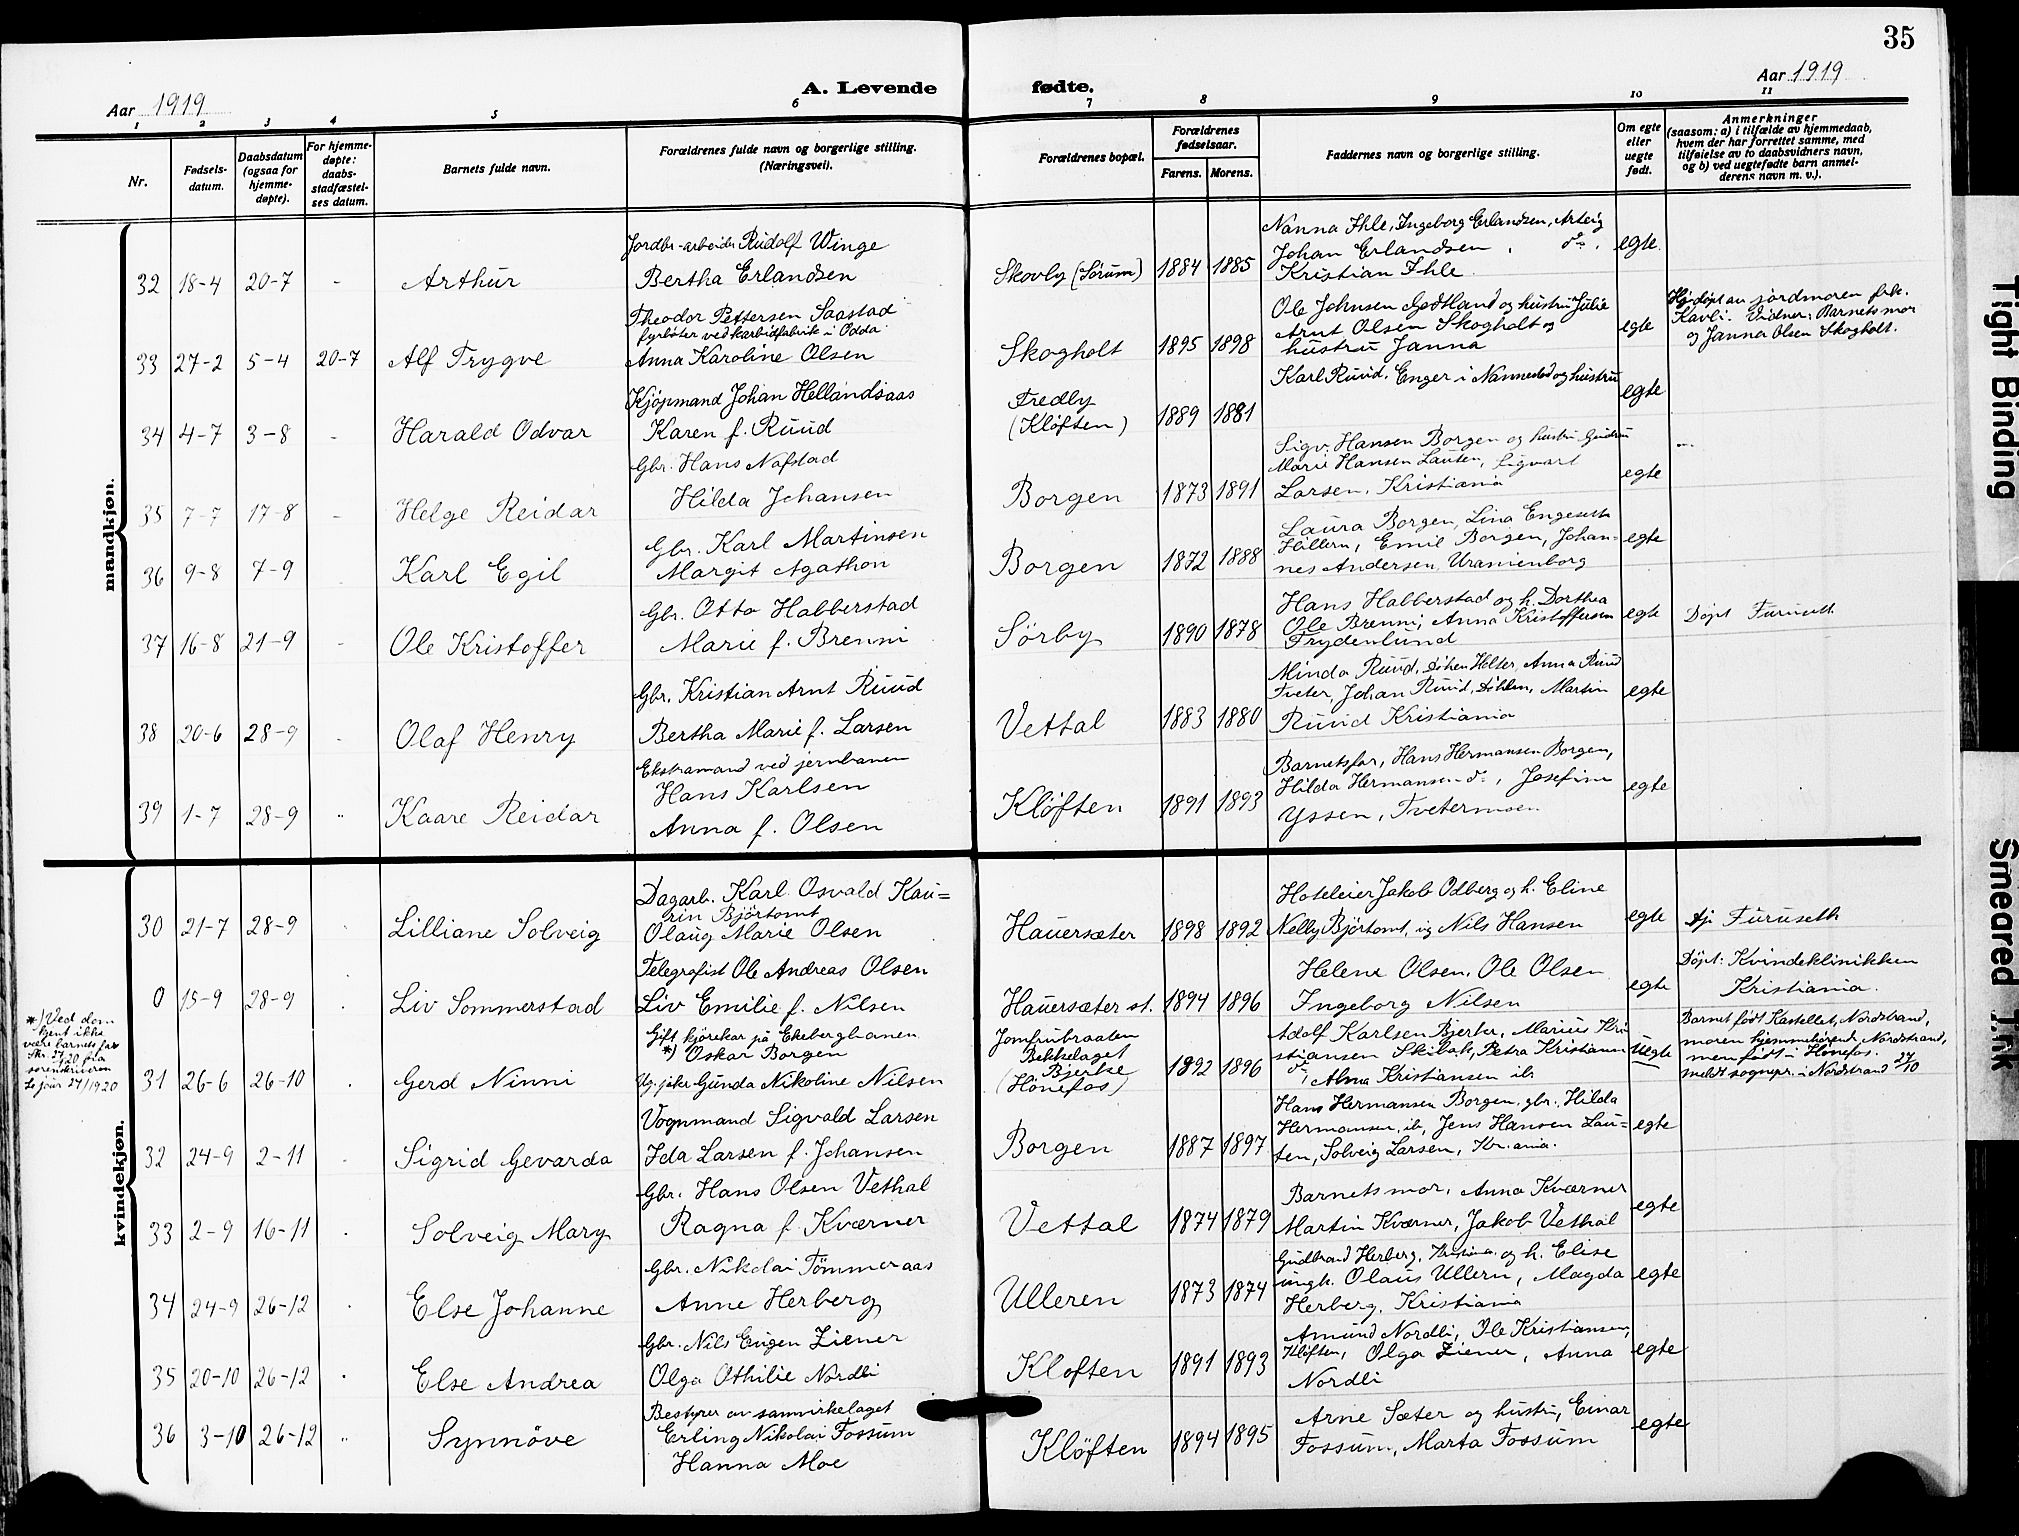 35
Aar 1919
A. Levende fødte.
Aar 1919
1 2 3 4 5 6 7 8 9 10 11
Nr.
Fødsels-
datum.
Daabsdatum
(ogsaa for
hjemme-
døpte).
For hjemme-
døpte:
daabs-
stadfæstel-
ses datum.
Barnets fulde navn.
Forældrenes fulde navn og borgerlige stilling.
(Næringsvei).
Forældrenes bopæl.
Forældrenes
fødselsaar.
Farens. Morens.
Faddernes navn og borgerlige stilling.
Om egte
eller
uegte
født.
Anmerkninger
(saasom: a) i tilfælde av hjemmedaab,
hvem der har forrettet samme, med
tilføielse av to daabsvidners navn,
og b) ved uegtefødte barn anmel-
derens navn m. v.).
mandkjøn.
32 18-4 20-7 - Arthur
Jordbr-arbeider Rudolf Winge
Bertha Erlandsen
Skovly (Sørum) 1884 1885
Nanna Ihle, Ingeborg Erlandsen, Arteig
Johan Erlandsen, do.
Kristian Ihle.
egte.
33 27-2 5-4 20-7 Alf Trygve
Theodor Pettersen Saastad
fyrbøter ved karbidfabrik i Odda
Anna Karoline Olsen
Skogholt 1895 1898
Ole Johnsen Godtland og hustru Julie
Arnt Olsen Skogholt og
hustru Janna
egte
Hj.døpt av jordmoren frk.
Kavli. Vidner: Barnets mor
og Janna Olsen Skogholt.
34 4-7 3-8 - Harald Odvar
Kjøpmand Johan Hellandsaas
Karen f. Ruud
Fredly
(Kløften) 1889 1881
Karl Ruud, Enger i Nannestad og hustru
egte
35 7-7 17-8 - Helge Reidar
Gbr. Hans Nafstad
Hilda Johansen
Borgen 1873 1891
Sigv. Hansen Borgen og hustru Gudrun
Marie Hansen Lauten, Sigvart
Larsen, Kristiania
egte
36 9-8 7-9 Karl Egil
Gbr. Karl Martinsen
Margit Agathon
Borgen 1872 1888
Laura Borgen, Lina Engeseth
Hillern, Emil Borgen, Johan-
nes Andersen, Uranienborg
egte
37 16-8 21-9 - Ole Kristoffer
Gbr. Otto Habberstad
Marie f. Brenni
Sörby 1890 1878
Hans Habberstad og h. Dorthea
Ole Brenni, Anna Kristoffersen
Frydenlund
egte
Døpt Furuseth
38 20-6 28-9 - Olaf Henry
Gbr. Kristian Arnt Ruud
Bertha Marie f. Larsen
Vettal 1883 1880
Minda Ruud, Døhlen Helter, Anna Ruud
Tveter, Johan Ruud, Døhlen, Martin
Ruud Kristiania
egte
39 1-7 28-9 " Kaare Reidar
Ekstramand ved jernbanen
Hans Karlsen
Anna f. Olsen
Kløften 1891 1893
Barnets far, Hans Hermansen Borgen,
Hilda Hermansen do, Josefine
Yssen, Tvetermoen
egte
kvindekjøn.
30 21-7 28-9 Lilliane Solveig
Dagarb. Karl Osvald Kau-
rin Bjørtomt
Olaug Marie Olsen
Hauersæter 1898 1892
Hoteleier Jakob Odberg og h. Eline
Nelly Bjørtomt, og Nils Hansen
egte
Furuseth
0 15-9 28-9 Liv Sommerstad
Telegrafist Ole Andreas Olsen
Liv Emilie f. Nilsen
Hauersæter st. 1894 1896
Helene Olsen, Ole Olsen
Ingeborg Nilsen
egte
Døpt: Kvindeklinikken
Kristiania.
*) Ved dom
kjent ikke
være barnets far
Skr. 27/1 20 fra
sorenskriveren
31 26-6 26-10 Gerd Ninni
Gift kjørekar på Ekebergbanen
*) Oskar Borgen
Ug. pike Gunda Nikoline Nilsen
Jomfrubraaten
Bekkelaget
Bjerke
(Hönefos) 1892 1896
Adolf Karlsen Bjerke, Marius Kri
stiansen Skibak, Petra Kristiansen
do, Alma Kristiansen ib.
Uegte
Barnet født Kastellet, Nordstrand,
moren hjemmehörende, Nordstrand,
men født i Hönefos.
Meldt sognepr. i Nordstrand 27/10
32 24-9 2-11 Sigrid Gevarda
Vognmand Sigvald Larsen
Ida Larsen f. Johansen
Borgen 1887 1897
Hans Hermansen Borgen, gbr., Hilda
Hermansen, ib, Jens Hansen Lau-
ten, Solveig Larsen, Kr.ania.
egte
33 2-9 16-11 Solveig Mary
Gbr. Hans Olsen Vethal
Ragna f. Kværner
Vettal 1874 1879
Barnets mor, Anna Kværner
Martin Kværner, Jakob Vethal
egte
34 24-9 26-12 Else Johanne
Gbr. Nikolai Tömmeraas
Anne Herberg
Ulleren 1873 1874
Gudbrand Herberg, Kristiania og h. Elise
ungk. Olaus Ullern, Magda
Herberg, Kristiania
egte
35 20-10 26-12 Else Andrea
Gbr. Nils Eugen Ziener
Olga Othilie Nordli
Kloften 1891 1893
Amund Nordli, Ole Kristiansen,
Kløften, Olga Ziener, Anna
Nordli
egte
36 3-10 26-12 " Synnöve
Bestyrer av samvirkelaget
Erling Nikolai Fossum
Hanna Moe
Kløften 1894 1895
Arne Sæter og hustru, Einar
Fossum, Marta Fossum
egte
Tight Binding
Smeared Ink